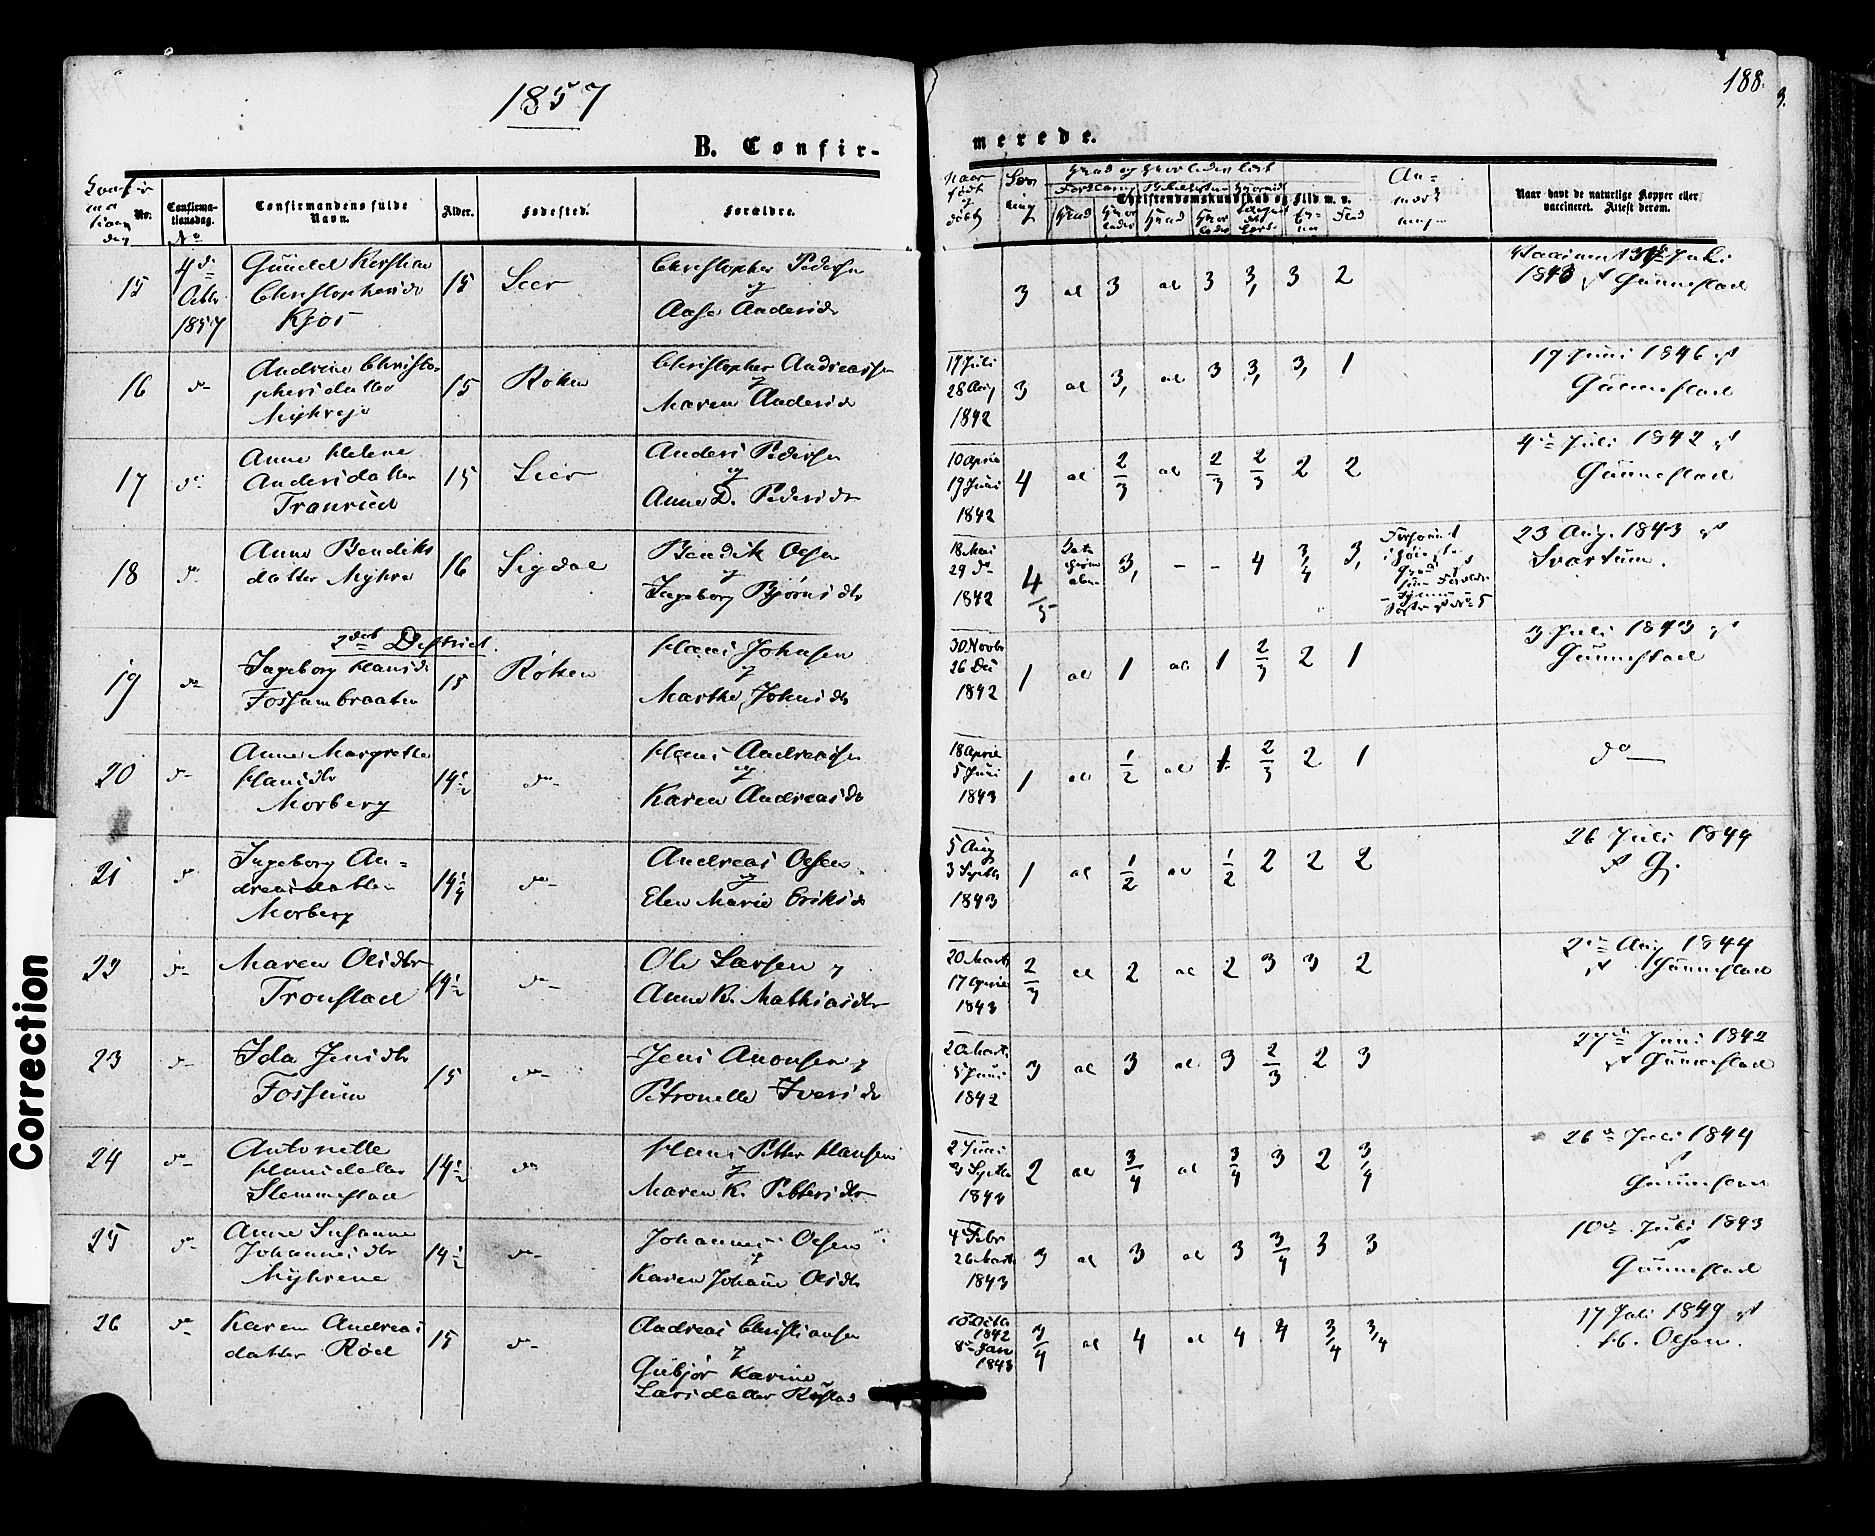 1857
188.
B. Confir-
merede.
No.
Confirma-
tionsdag.
Confirmandens fulde
Navn.
Alder.
Fødested.
Forældre.
Christendomskundskab og Flid m. v.
Naar havt de naturlige Kopper eller
vaccineret. Attest derom.
15
4de
Octbr
1857
Christophersdr
Kjos
15
Lier
Christopher Pedersen
og
Aase Andersdr
3 al 3 al 3 3, 3 2
1843 Gunnestad
16
do
Andrine Christo-
phersdatter
Myhreje
15
Røken
Christopher Andreassen
og
Maren Andersdr
17 Juli
28 Aug
1842
3 al 3, al 3 3, 3, 1
17 Juni 1846
Gunnestad
17
do
Anne Helene
Andersdatter
Tranrud
15
Lier
Anders Pedersen
og
Anne D. Pedersdr
10 April
19 Juni
1842
4 al 2/3 al 2/3 2/3 2 2
4de Juli 1842
Gunnestad
18
do
Anne Bendiks
datter Myhre
16
Sigdal
Bendik Olsen
og
Ingeborg Bjørnsdtr
18 Mai
29 do
1842
4/5
3, - - 4 3/4 3,
23 Aug. 1843
Svartum.
2det District.
19
do
Ingeborg Hansdr
Fossumbraaten
15
Røken
Hans Johnsen
og
Marthe Johnsdtr
30 Novbr
26 Dec
1842
1 al 1 al 1 2/3 2 1
3 Juli 1843
Gunnestad
20
do
Anne Margrethe
Hansdtr
Morberg
14 1/2
do
Hans Andreassen
og
Karen Andreasdr
18 April
5 Juni
1843
1 al 1/2 al 1 2/3 2 1
do
21
do
Ingeborg An-
dreasdatter
Morberg
14 1/4
do
Andreas Olsen
og
Elen Marie Eriksdr
5 Aug
3 Septbr
1843
1 al 1/2 al 1/2 2 2 2
26 Juli 1844
G.
23
do
Maren Olsdtr
Tronstad
14 1/2
do
Ole Larsen
Anne K. Mathiasdtr
20 Marts
17 April
1843
2/3 al 2 al 2 3 3 2
2de Aug 1844
Gunnestad
23
do
Ida Jensdtr
Fossum
15
do
Jens Anonsen
Petronelle Iversdr
20 Marts
5 Juni
1842
3 al 3 al 3 2/3 2 3
27de Juni 1842
Gunnestad
24
do
Antonette
Hansdatter
Slemmestad
14 1/2
do
Hans Petter Hansen
og
Maren K. Pettersdtr
2 Juni
Septbr
1844
2 al 3/4 al 3/4 3 2 3/4
26de Juli 1844
Gunnestad
25
do
Anne Susanne
Johannesdtr
Myhrene
14 1/2
do
Johannes Olsen
og
Karen Johanne Olsdtr
4 Febr
26 Marts
1843
3 al 3 al 3 3/4 3 3
10de Juli 1843
Gunnestad
26
do
Karen Andreas
datter Rød
15
do
Andreas Christiansen
og
Gubjør Karine
Larsdatter
10 Octbr
1842
8de Jan
1843
3/4 al 4 al 4 4 3/4 3/4
17 Juli 1849
H. Olsen.
Correction